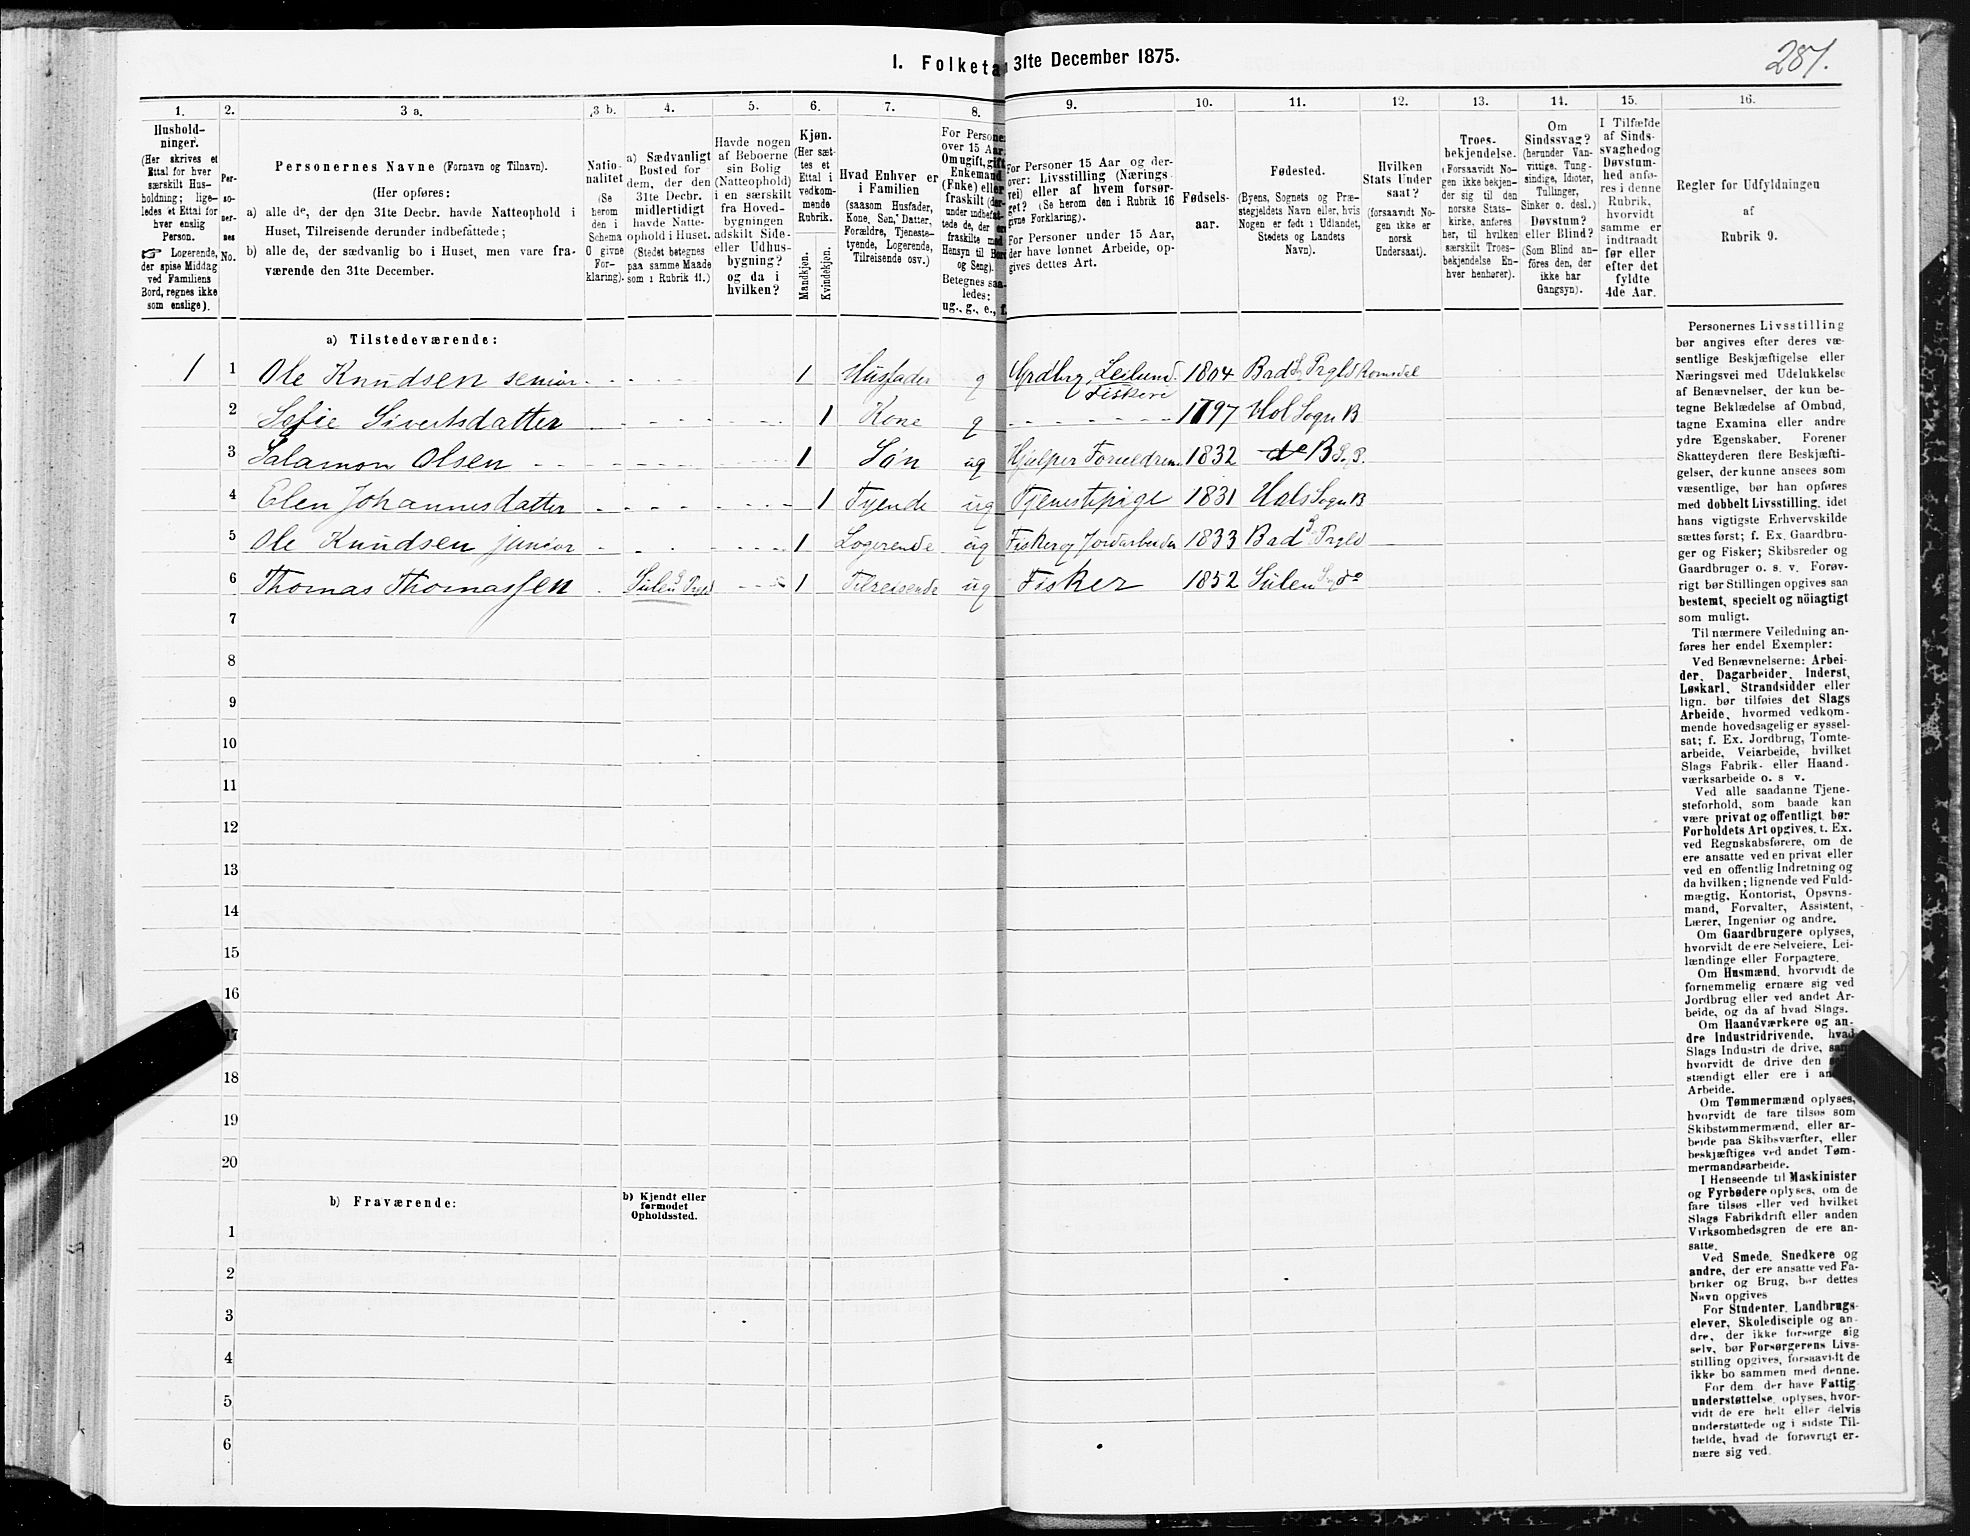 I. Folketa 31te December 1875.
287.
1. 2. 3 a. 3 b. 4. 5. 6. 7. 8. 9. 10. 11. 12. 13. 14. 15. 16.
Hushold-
ninger.
(Her skrives et
Ettal for hver
særskilt Hus-
holdning; lige-
ledes et Ettal for
hver enslig
Person.
☞ Logerende,
der spise Middag
ved Familiens
Bord, regnes ikke
som enslige).
Per-
so-
ner-
nes
No.
Personernes Navne (Fornavn og Tilnavn).
(Her opføres:
a) alle de, der den 31te Decbr. havde Natteophold i
Huset, Tilreisende derunder indbefattede;
b) alle de, der sædvanlig bo i Huset, men vare fra-
værende den 31te December.
Natio-
nalitet
(Se
herom
den i
Schema
6 givne
For-
klaring).
a) Sædvanligt
Bosted for
dem, der den
31te Decbr.
midlertidigt
havde Natte-
ophold i Huset.
(Stedet betegnes
paa samme Maade
som i Rubrik 11.)
Havde nogen
af Beboerne
sin Bolig
(Natteophold)
i en særskilt
fra Hoved-
bygningen
adskilt Side-
eller Udhus-
bygning?
og da i
hvilken?
Kjøn.
(Her sæt-
tes et
Ettal i
vedkom-
mende
Rubrik.
Mandkjøn.
Kvindekjøn.
Hvad Enhver er
i Familien
(saasom Husfader,
Kone, Søn, Datter,
Forældre, Tjeneste-
tyende, Logerende,
Tilreisende osv.)
For Personer
over 15 Aar:
Om ugift, gift,
Enkemand
(Enke) eller
fraskilt (der-
under indbefat-
tede de, der ere
fraskilte med
Hensyn til Bord
og Seng).
Betegnes saa-
ledes:
ug., g., e., f.
For Personer 15 Aar og der-
over: Livsstilling (Nærings-
vei) eller af hvem forsør-
get? (Se herom den i Rubrik 16
givne Forklaring).
For Personer under 15 Aar,
der have lønnet Arbeide, op-
gives dettes Art.
Fødsels-
aar.
Fødested.
(Byens, Sognets og Præ-
stegjeldets Navn eller, hvis
Nogen er født i Udlandet,
Stedets og Landets
Navn).
Hvilken
Stats Under
saat?
(forsaavidt No-
gen ikke er
norsk
Undersaat).
Troes-
bekjendelse.
(Forsaavidt No-
gen ikke bekjen-
der sig til den
norske Stats-
kirke, anføres
her, til hvilken
særskilt Troes-
bekjendelse En-
hver henhører).
Om
Sindssvag?
(herunder Van-
vittige, Tung-
sindige, Idioter,
Tullinger,
Sinker o. desl.)
Døvstum?
eller Blind?
(Som Blind an-
føres den, der
ikke har
Gangsyn).
I Tilfælde
af Sinds-
svaghed og
Døvstum-
hed anfø-
res i denne
Rubrik,
hvorvidt
samme er
indtraadt
før eller
efter det
fyldte
4de Aar.
Regler for Udfyldningen
af
Rubrik 9.
a) Tilstedeværende:
1 1 Ole Knudsen senior 1 Husfader g Grdbrg, Leilend. Fiskeri 1804 Bad S. Prgld Romsdal
2 Sofie Sivertsdatter 1 Kone g 1797 Hol Sogn B
3 Salamon Olsen 1 Søn ug Hjelper Foreldrene 1832 do B S. P.
4 Elen Johannesdatter 1 Tyende ug Tjenestepige 1831 Hols Sogn B
5 Ole Knudsen junior 1 Logerende ug Fisker og Jordarbeider 1833 Bad S Prgld
6 Thomas Thomassen Sulen S Prgld 1 Tilreisende ug Fisker 1852 Sulen S. do
7
8
9
10
11
12
13
14
15
16
17
18
19
20
b) Fraværende:
b) Kjendt eller
formodet
Opholdssted.
1
2
3
4
5
6
Personernes Livsstilling
bør angives efter deres væ-
sentlige Beskjæftigelse eller
Næringsvei med Udelukkelse
af Benævnelser, der kun be-
tegne Beklædelse af Ombud,
tagne Examina eller andre
ydre Egenskaber. Forener
Skatteyderen flere Beskjæfti-
gelser, der kunne ansees som
væsentlige, bør han opføres
med dobbelt Livsstilling, idet
hans vigtigste Erhvervskilde
sættes først; f. Ex. Gaardbru-
ger og Fisker; Skibsreder og
Gaardbruger o. s. v. Forøv-
rigt bør Stillingen opgives saa
bestemt, specielt og nöiagtigt
som muligt.
Til nærmere Veiledning an-
føres her endel Exempler:
Ved Benævnelserne: Arbei-
der, Dagarbeider, Inderst,
Løskarl, Strandsidder eller
lign. bør tilføies det Slags
Arbeide, hvormed vedkom-
mende hovedsagelig er syssel-
sat; f. Ex. Jordbrug, Tomte-
arbeide, Veiarbeide, hvilket
Slags Fabrik- eller Haand-
værksarbeide o. s v.
Ved alle saadanne Tjene-
steforhold, som baade kan
være privat og offentligt, bør
Forholdets Art opgives, t. Ex.
ved Regnskabsførere, om de
ere ansatte ved en privat eller
ved en offentlig Indretning og
da hvilken; lignende ved Fuld-
mægtig, Kontorist, Opsyns-
mand, Forvalter, Assistent,
Lærer, Ingeniør og andre.
Om Gaardbrugere oplyses,
hvorvidt de ere Selveiere, Lei-
lændinge eller Forpagtere.
Om Husmænd, hvorvidt de
fornemmelig ernære sig ved
Jordbrug eller ved andet Ar-
beide, og da af hvad Slags.
Om Haandværkere og an-
dre Industridrivende, hvad
Slags Industri de drive,
hvorvidt de drive den
stændigt eller ere i
Arbeide.
Om Tømmermænd oplyses,
hvorvidt de fare tilsøs som
Skibstømmermænd, eller ar-
beide paa Skibsværfter, eller
beskjæftiges ved andet Tøm-
mermandsarbeide.
I Henseende til Maskinister
og Fyrbødere oplyses, om de
fare tilsøs eller ved hvilket
Slags Fabrikdrift eller anden
Virksomhedsgren de ere an-
satte.
Ved Smede, Snedkere og
andre, der ere ansatte ved Fa-
briker og Brug, bør dettes
Navn opgives
For Studenter, Landbrugs-
elever, Skoledisciple og an-
dre, der ikke forsørge sig
selv, bør Forsørgerens Livs-
stilling opgives, forsaavidt de
ikke bo sammen med denne.
For dem, der have Fattig-
understøttelse, oplyses, hvor-
vidt de ere helt eller delvis
understøttede og i sidste Til-
fælde, hvad de forøvrigt er-
nære sig ved.